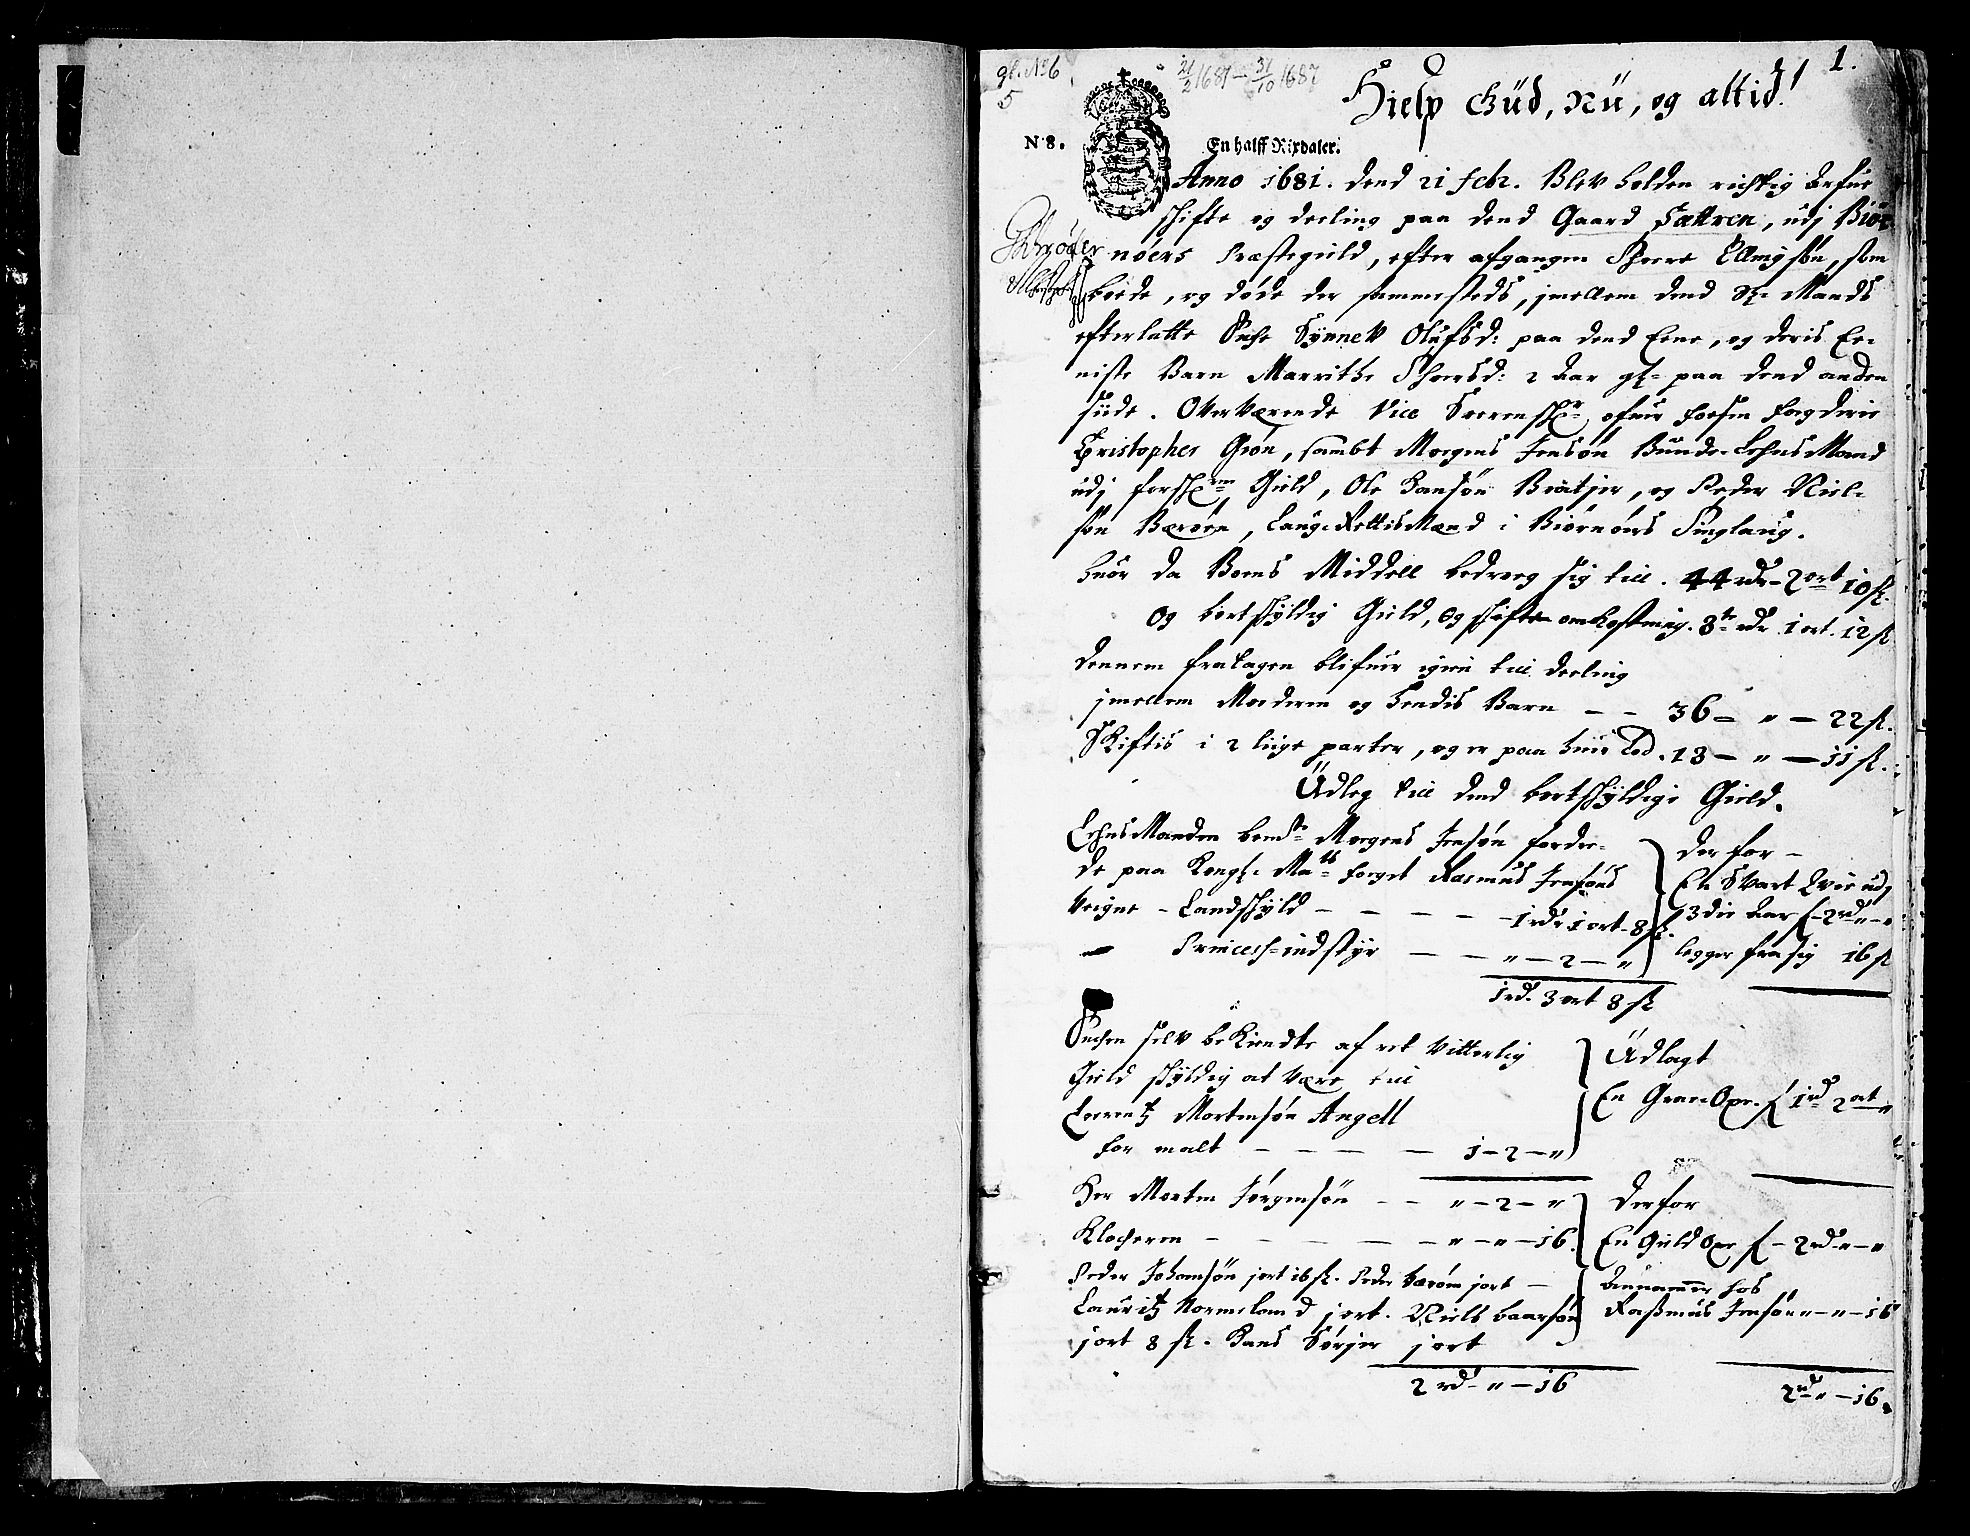 gl. No 6
5
21/2 1681 - 31/10 1687
1.
Hielp Güd, Nü, og altid!
N 8.
En halff Rixdaler.
Anno 1681. dend 21 febr. Blev holden richtig Arfue
skifte og deeling paa dend Gaard Sættren, udj Biör
nöers Præstegield, efter afgangen Sivert Ellingsön, som
boede, og döde der sammesteds, jmellem dend Sl. Mands
efterlatte Enche Synnev Olufsd: paa dend Eene, og deris Ee-
niste Barn Marrithe Siversd: 2 Aar gl. paa dend anden
siide. Overværende Vice Sorenskr. ofuer Fosen fogderie
Christopher Grön, sambt Mogens Jensön Bunde Lehns Mand
udj forskr. Gield, Ole Hansön Bratjer, og Peder Niel-
sön Beröen, Laug Rettis Mænd i Biörnöers Tinglaug.
huor da Boens Middell bedroeg sig till. 44 rdr - 2 ort 10 sk.
Og bortskyldig Gield, og skifte omkostning. 8 rdr 1 ort. 12 sk
dennem fratagen blifuer igien till deeling
jmellem Moderen og hendis Barn - - 36 - " - 22 sk.
Skiftis i 2 liige parter, og er paa huer Lod. 18 - " - 11 sk.
Üdleg till dend bortskyldige Gield.
Lehns Manden bemte Mogens Jensön fordre-
de paa Kongl. Mats foeget Rasmus Jensöns
Veigne - Landskyld - - - - - 1 rdr 1 ort - 8 sk.
Princess-indstyr - - " - 2 - "
1 rd. 3 ort 8 sk
Der for -
En Svart Qvie udj
3die Aar f - 2 rd " - "
legger fra sig 16 sk
Enchen selv bekiendte af ret vitterlig
Gield skyldig at være till
Lorentz Mortensön Angell
for malt - - - - 1 - 2 - "
Üdlagt
En Graae Oxe f 1 rd 2 ort "
Her Morten Jörgensön - - " - 2 - "
Klocheren - - - - - " - " - 16.
Peder Johansön j ort 16 sk. Peder Beröen j ort -
Lauritz Normeland j ort. Niels baarsön
j ort 8 sk. Hans Sörjer j ort
2 rd - " - 16
Derfor
En Guld Oxe f - 2 rd " - "
Annammer hos
Rassmus Jensön " - " - 16
2 rd " - 16.